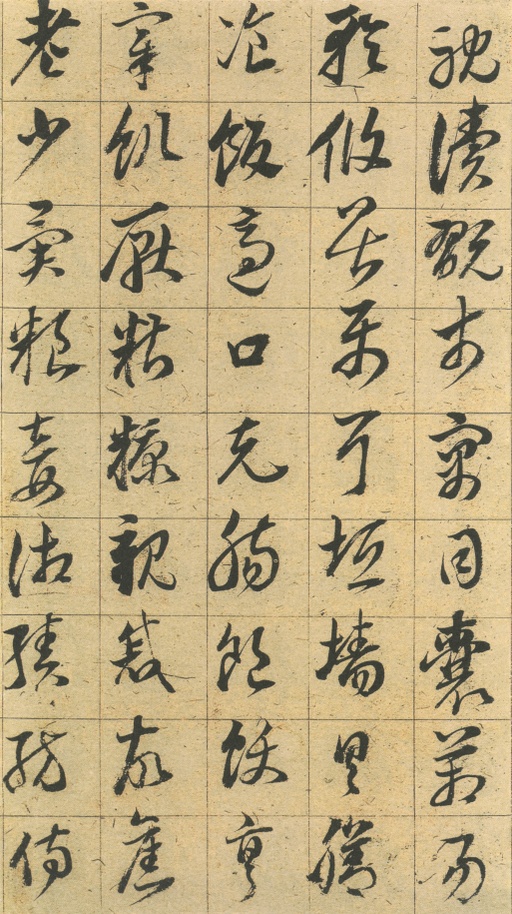 耽讀翫市寓目囊箱易
輶攸畏屬耳垣墻具膳
飡飯適口充腸飽飫烹
宰飢厭糟糠親戚故舊
老少異糧妾御績紡侍